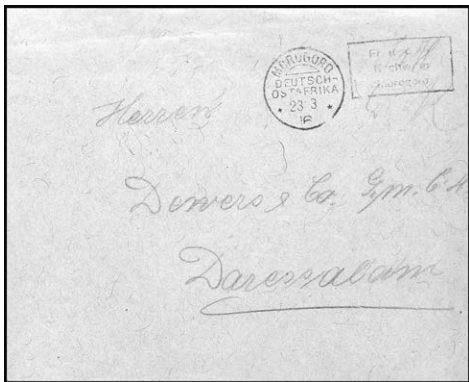 MOROGORO
DEUTSCH-
OSTAFRIKA
* 23 3 *
16
Herren
Denvers & Co. G.m.b.H
Daressalam